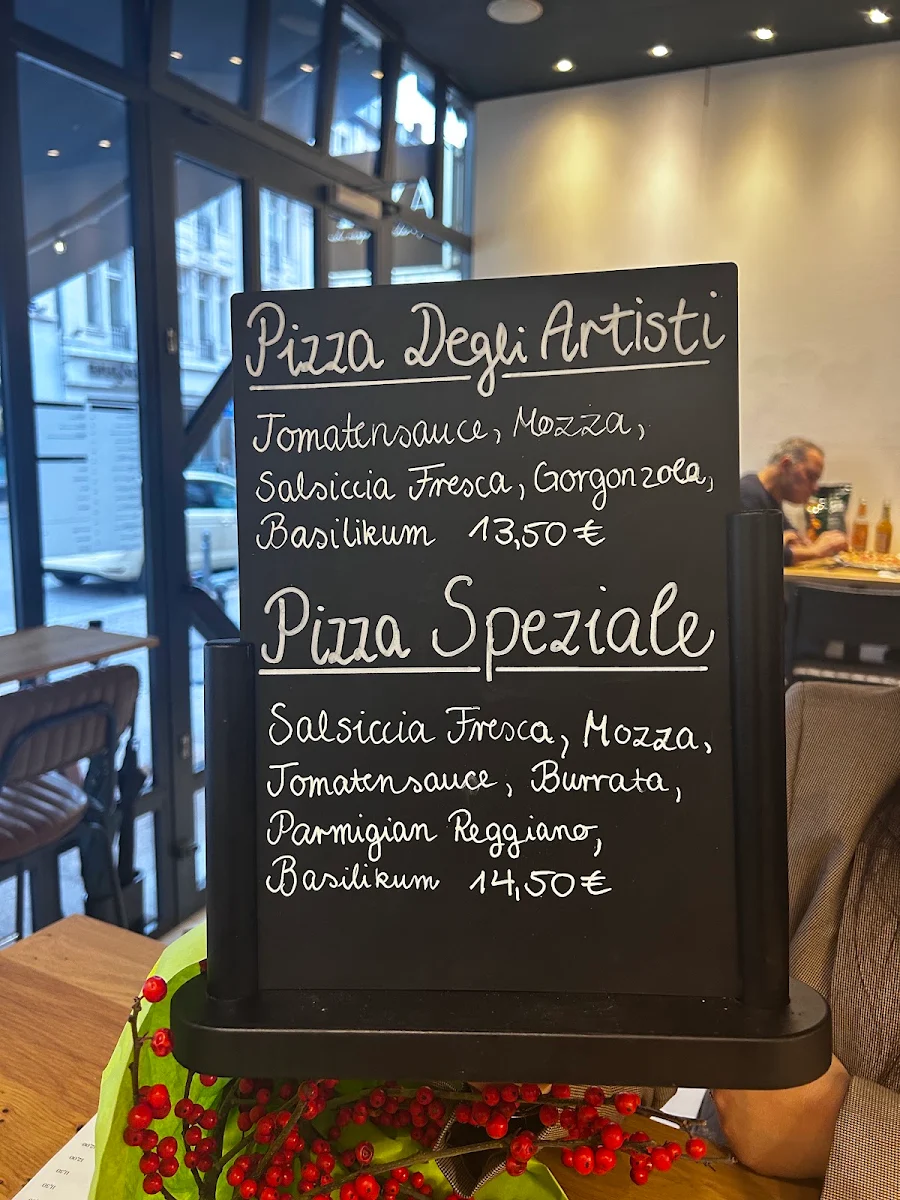 Pizza Degli Artisti
Tomatensauce, Mozza,
Salsiccia Fresca, Gorgonzola,
Basilikum 13,50 €
Pizza Speziale
Salsiccia Fresca, Mozza,
Tomatensauce, Burrata,
Parmigian Reggiano,
Basilikum 14,50 €